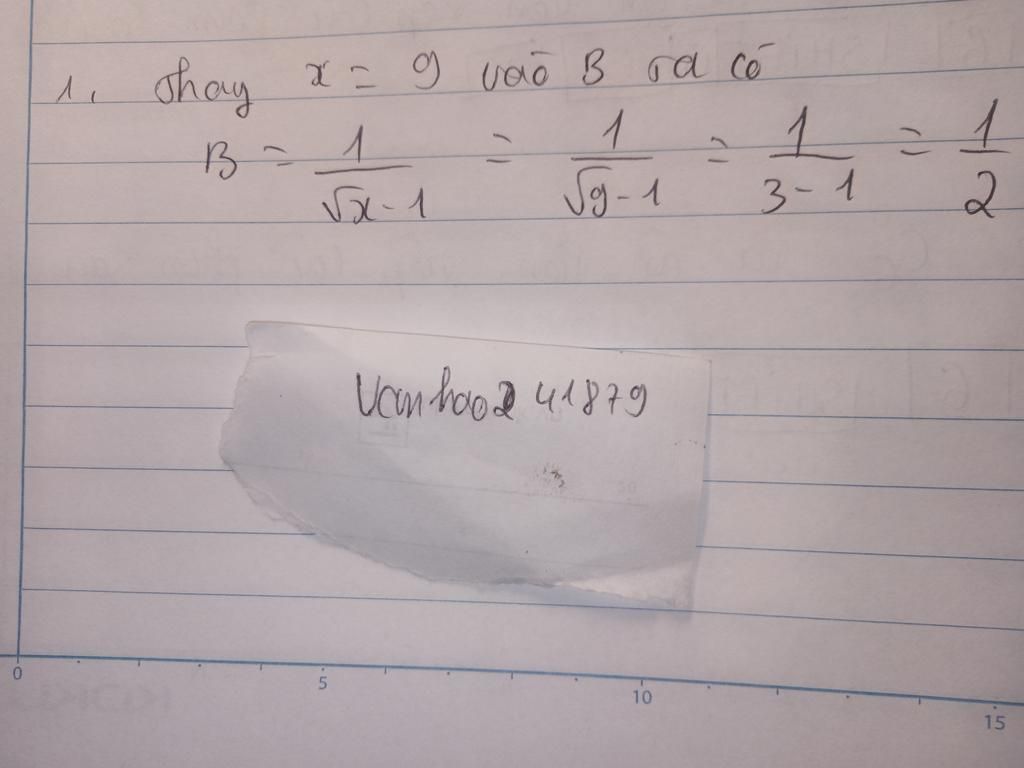 1. Thay x = 9 vào B ta có
B = 1/(√x - 1) = 1/(√9 - 1) = 1/(3 - 1) = 1/2
Vanhao2 41879
0 5 10 15